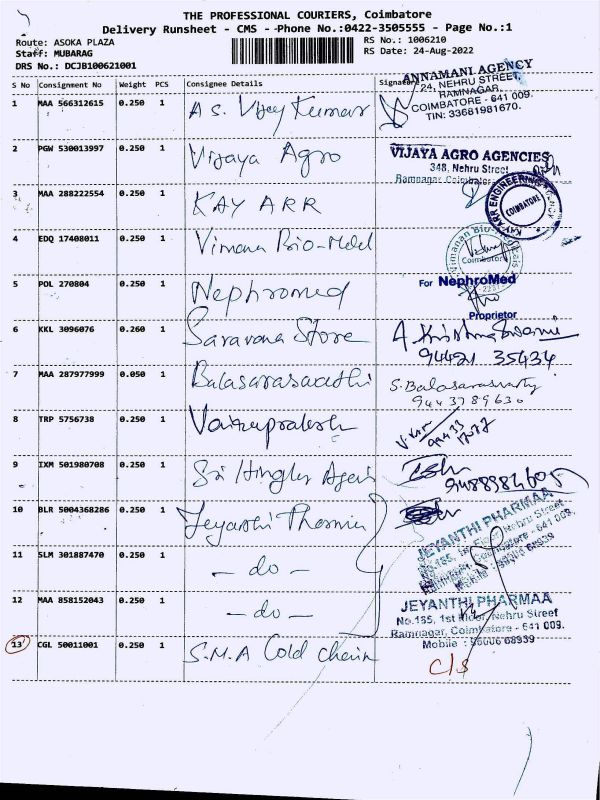 THE PROFESSIONAL COURIERS, Coimbatore
Delivery Runsheet - CMS - Phone No.:0422-3505555 - Page No.:1
Route: ASOKA PLAZA
RS No.: 1006210
Staff: MUBARAG
RS Date: 24-Aug-2022
DRS No.: DCJB100621001
S No Consignment No Weight PCS Consignee Details Signature
ANNAMANI AGENCY
24, NEHRU STREET,
RAMNAGAR,
COIMBATORE - 641 009.
TIN: 33681981670.
1 MAA 566312615 0.250 1 A S. Vijay Kumar
2 PGW 530013997 0.250 1 Vijaya Agro
VIJAYA AGRO AGENCIES
348, Nehru Street
Ramnagar, Coimbatore
3 MAA 288222554 0.250 1 KAY ARR
ARR ENGINEERING
COIMBATORE
4 EDQ 17408011 0.250 1 Vimana Bio-Medel
Vimanan Bio-
Coimbatore
5 POL 270804 0.250 1 Nephromed
For NephroMed
Proprietor
6 KKL 3096076 0.260 1 Saravana Store
A Krishnaswami
94421 35434
7 MAA 287977999 0.050 1 Balasarasaathi
S. Balasaraswathy
9443789630
8 TRP 5756738 0.250 1
9 IXM 501980708 0.250 1 Sri
10 BLR 5004368286 0.250 1 Jeyanthi Pharma
JEYANTHI PHARMAA
No.185, 1st Floor, Nehru Street
Ramnagar, Coimbatore - 641 009.
Mobile : 96006 68939
11 SLM 301887470 0.250 1 - do -
12 MAA 858152043 0.250 1 - do -
JEYANTHI PHARMAA
No.185, 1st Floor, Nehru Street
Ramnagar, Coimbatore - 641 009.
Mobile : 96006 68939
13 CGL 50011001 0.250 1 S.M.A Cold chain
C/S